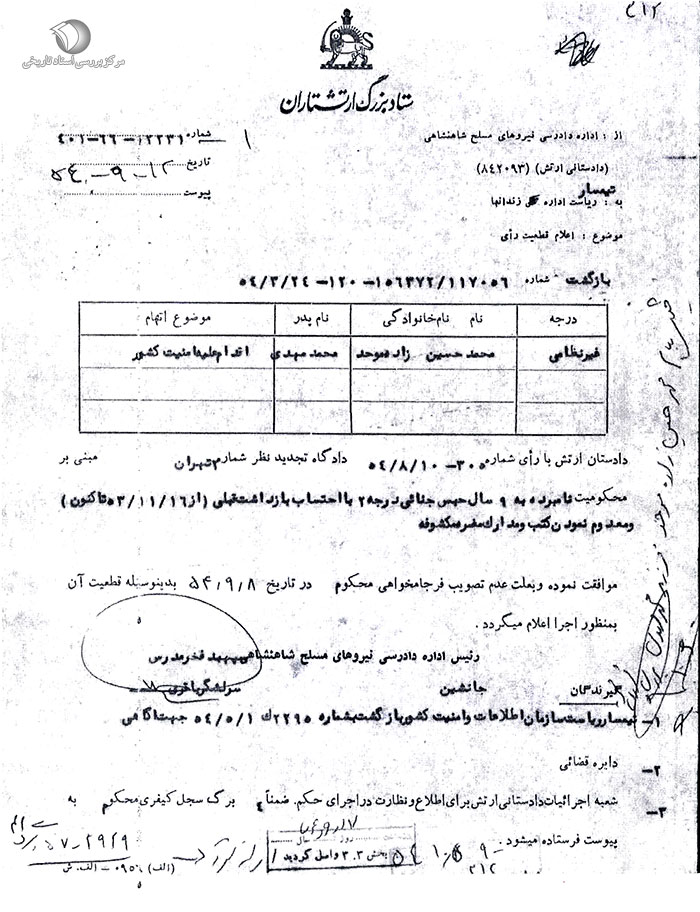 مرکز بررسی اسناد تاریخی
۳۱۲
ستاد بزرگ ارتشتاران
از : اداره دادرسی نیروهای مسلح شاهنشاهی
شماره ۱۲۲۳۱-۶۶-۴۰۱
(دادستانی ارتش) (۸۴۲۰۹۳)
تاریخ ۱۲-۹-۵۴
تیمسار
به : ریاست اداره زندانها
پیوست
موضوع : اعلام قطعیت رأی
بازگشت شماره ۱۵۶۳۷۲/۱۱۷۰۵۶-۱۲۰-۵۴/۳/۲۴
درجه نام نام‌خانوادگی نام پدر موضوع اتهام
غیرنظامی محمد حسین زاده موحد محمد مهدی اقدام علیه امنیت کشور
دادستان ارتش با رأی شماره ۳۰۵-۵۴/۸/۱۰ دادگاه تجدید نظر شماره ۲ تهران مبنی بر
محکومیت نامبرده به ۹ سال حبس جنائی درجه ۲ با احتساب بازداشت قبلی (از ۵۳/۱۱/۱۶ تاکنون)
و معدوم نمودن کتب و مدارک مضره مکشوفه
موافقت نموده و بعلت عدم تصویب فرجامخواهی محکوم در تاریخ ۵۴٫۹٫۸ بدینوسیله قطعیت آن
بمنظور اجرا اعلام میگردد .
رئیس اداره دادرسی نیروهای مسلح شاهنشاهی سپهبد فخرمدرس
گیرندگان جانشین سرلشگر باقری
۱- تیمسار ریاست سازمان اطلاعات و امنیت کشور بازگشت بشماره ۲۲۹۵ك ۵۴/۵/۱ جهت آگاهی
۲- دایره قضائی
۳- شعبه اجرائیات دادستانی ارتش برای اطلاع و نظارت در اجرای حکم. ضمناً ۴ برگ سجل کیفری محکوم به
پیوست فرستاده میشود .
روز سال
بخش ۳.۳ واصل گردید
۳۱۲
(الف) ۰۹۵ - الف. ش